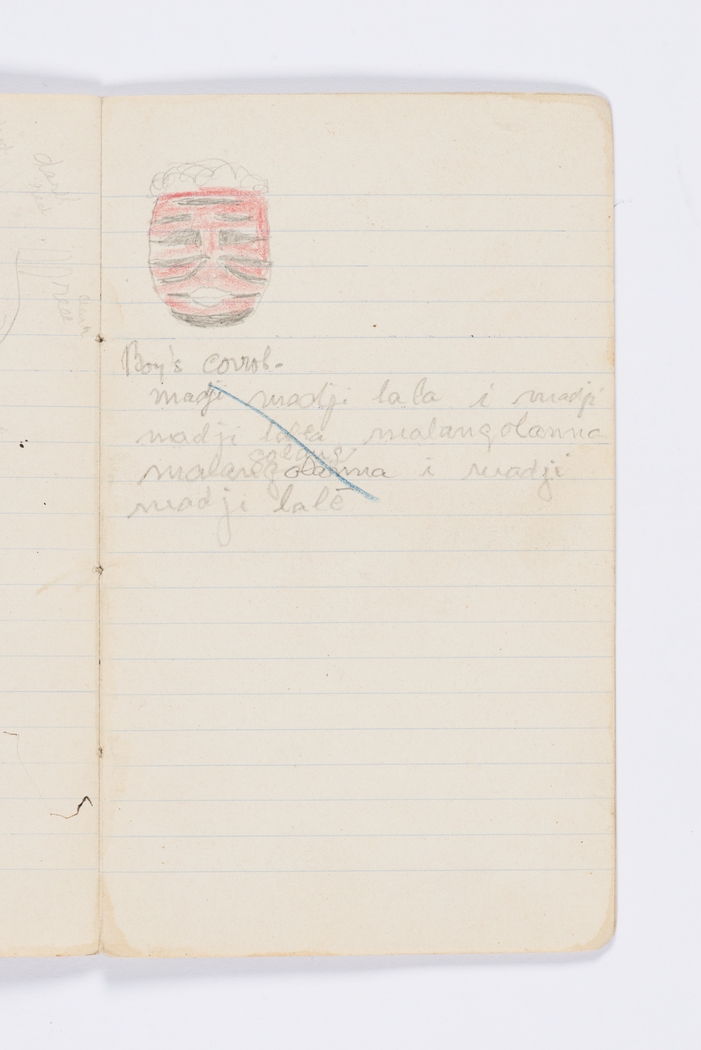 dark
red
Boy's corrob-
madji madji lala i madji
madji lala malangolanna
golang
malangolanna i madji
madji lalē